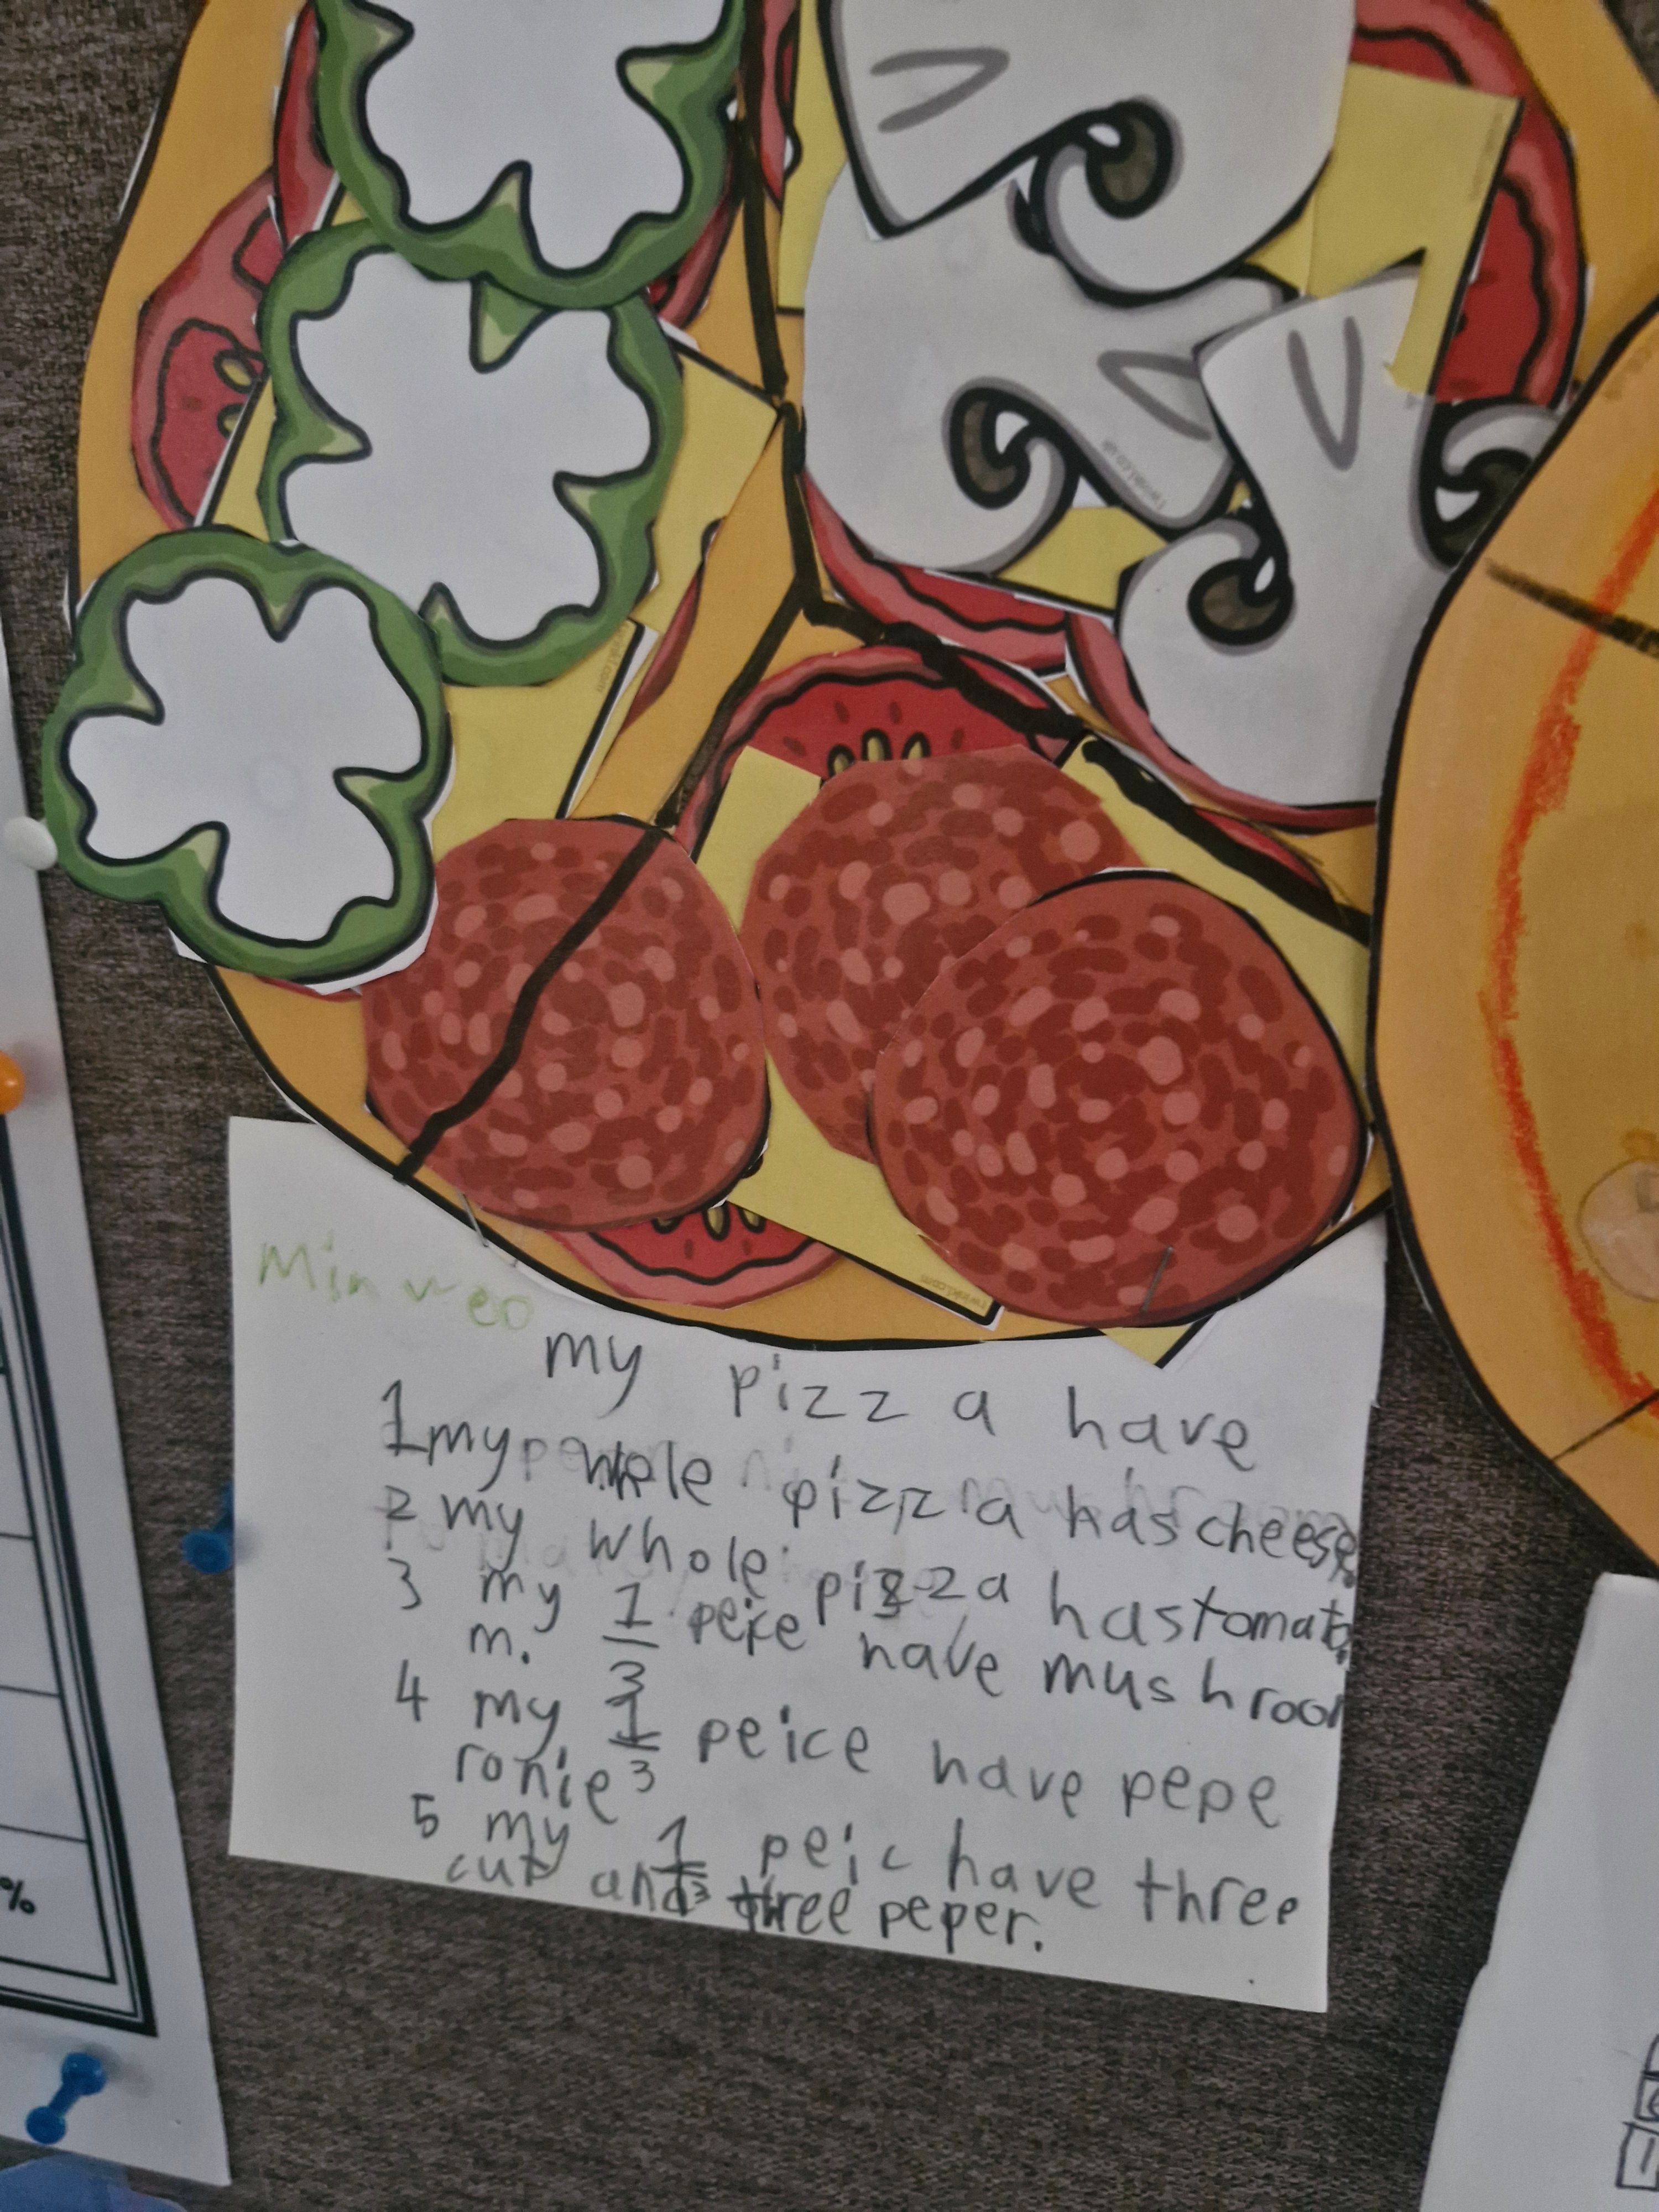 Minweo
my pizza have
1 my whole pizza has cheese.
2 my whole pizza has tomato.
3 my 1/3 peice have mushroo
m.
4 my 1/3 peice have pepe
ronie
5 my 1/3 peic have three
cut and three peper.
twinkl.co.uk
twinkl.com
%